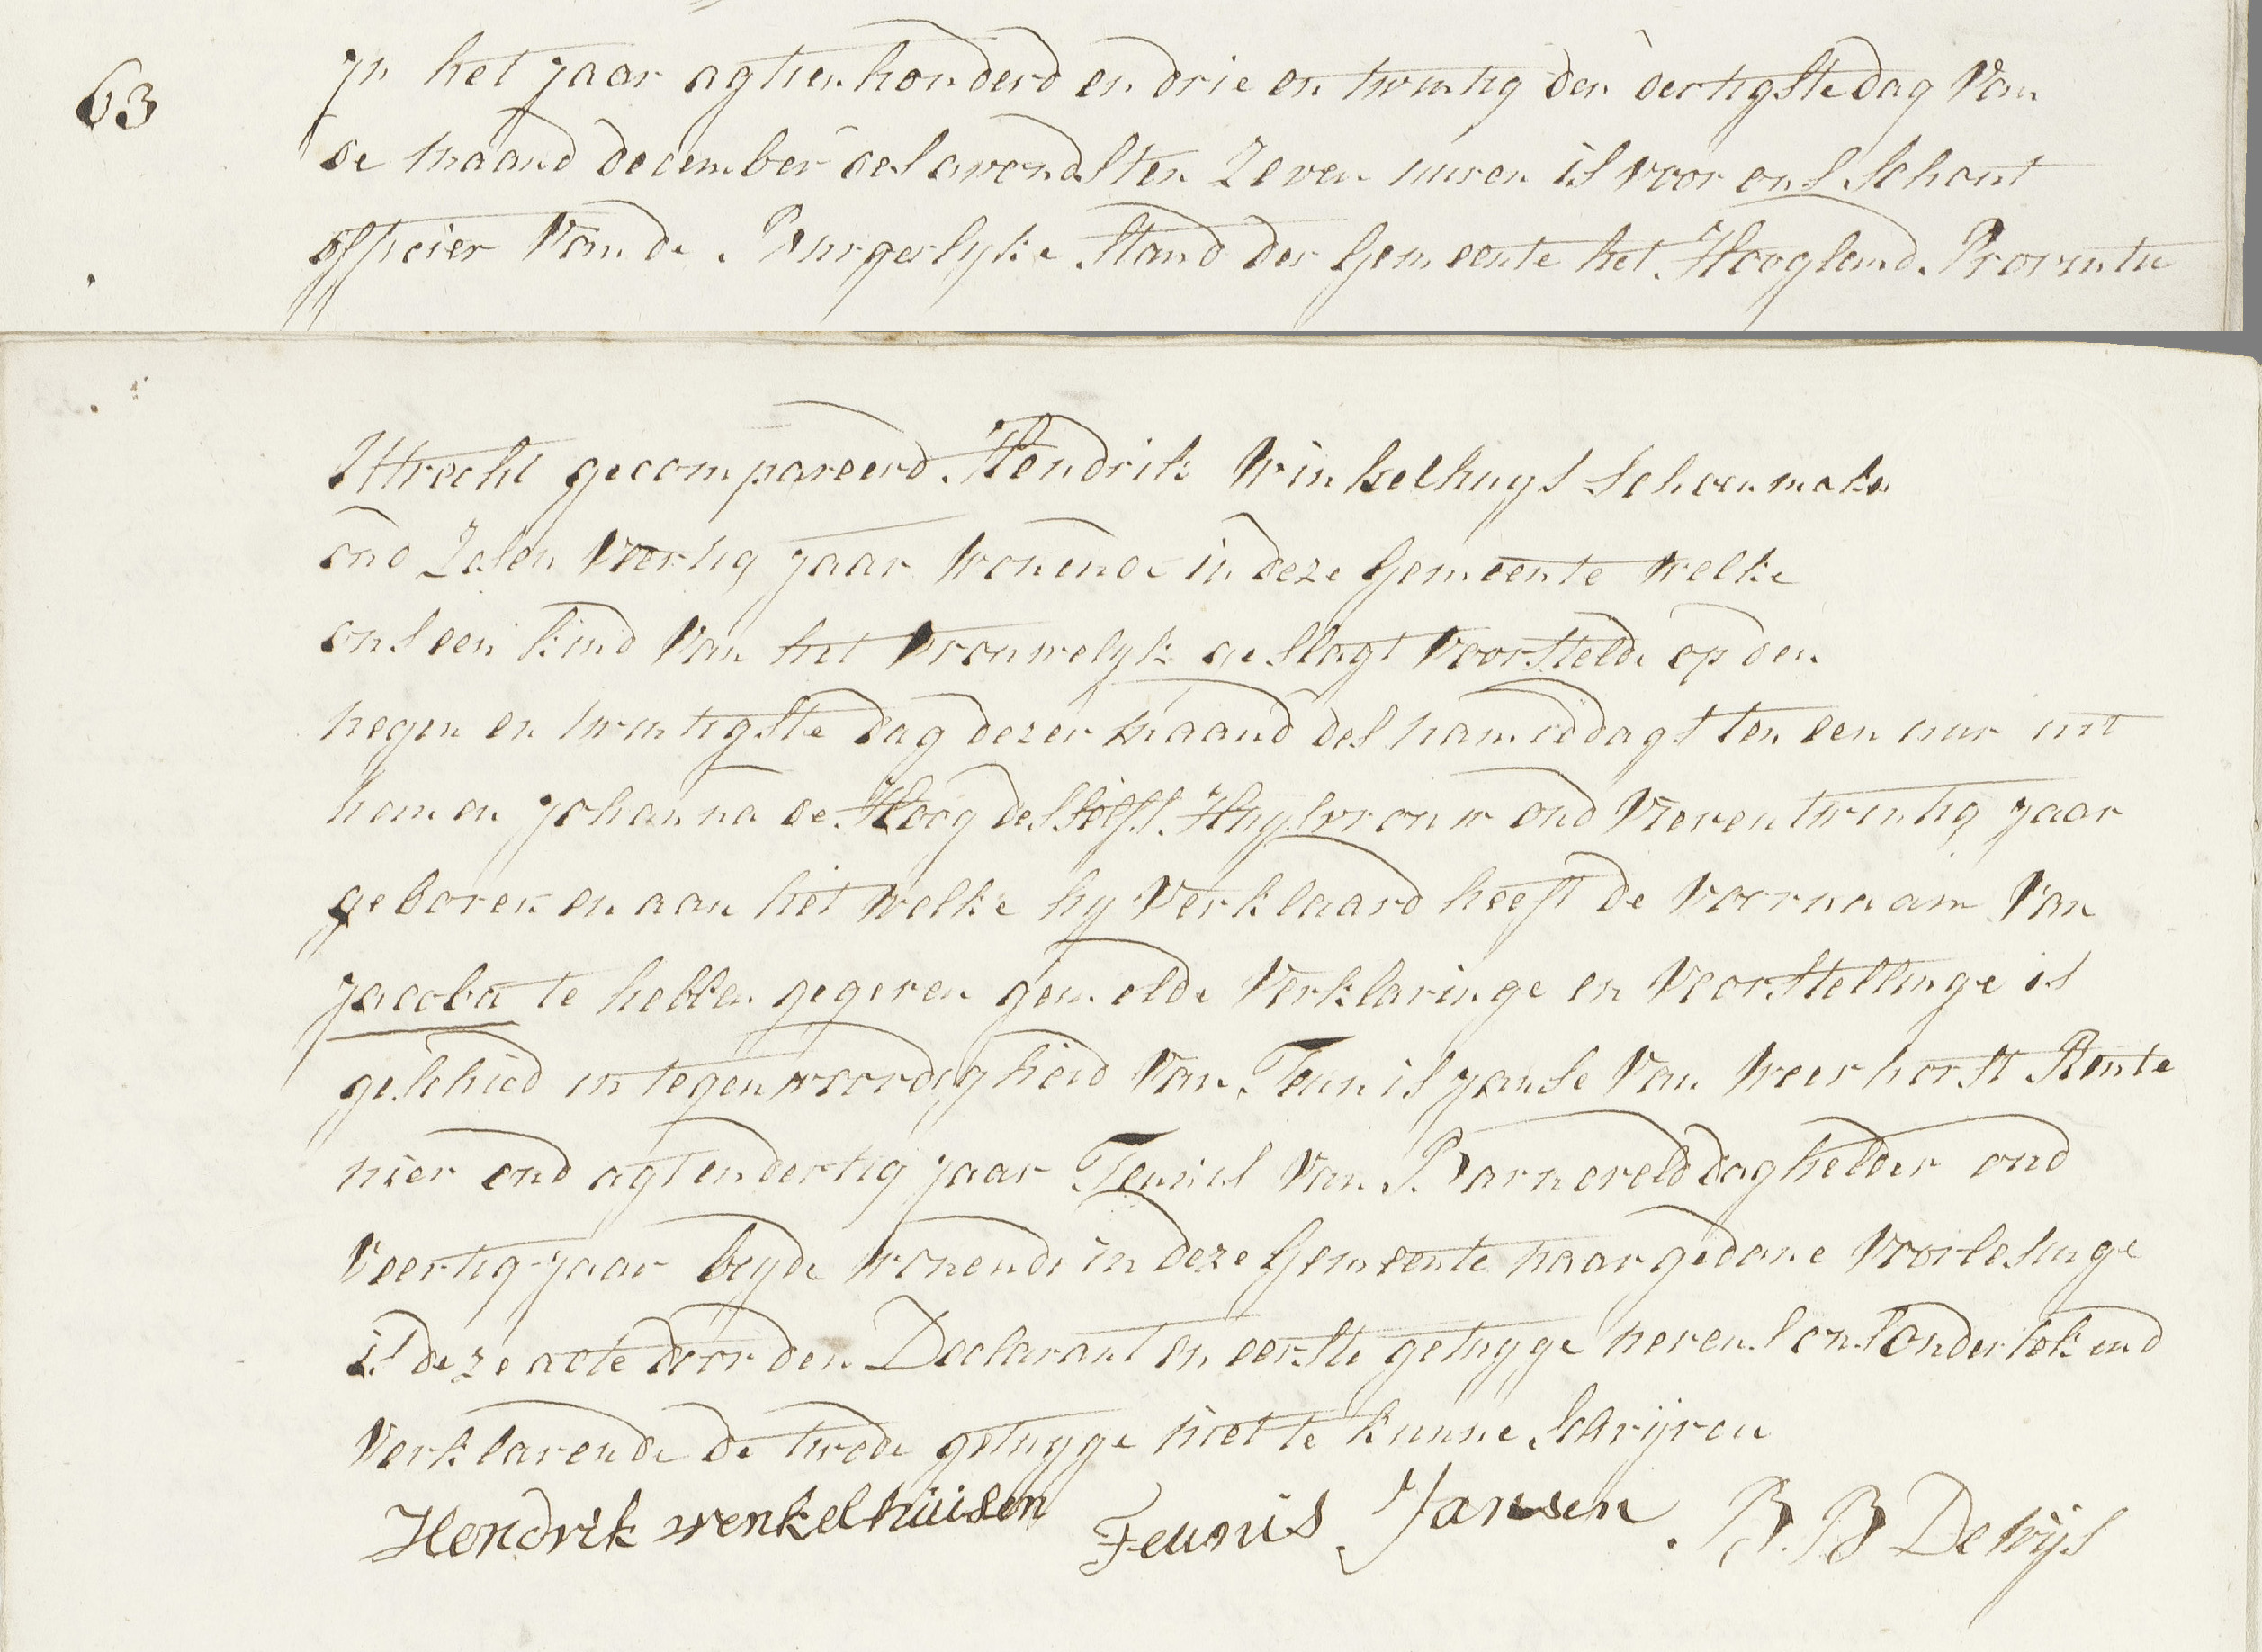 63
jn het jaar agtienhonderd en drie en twintig den dertigste dag Van
de maand december des avonds ten Zeven uuren is voor ons Schout
officier Van de Burgerlyke Stand der Gemeente het Hoogland Provintie
Uttrecht gecompareerd Hendrik Winkelhuys Schoenmaker
oud Zesen Veertig jaar wonende in deze Gemeente welke
ons een kind Van het Vrouwelyk geslagt Voorstelde op den
negen en twintigste dag dezer maand des namiddags ten een uur uit
hem en johanna de Hoog desselfs Huysvrouw oud Vierentwintig jaar
geboren en aan het welke hy Verklaard heeft de Voornaam Van
jacoba te hebben gegeven gemelde Verklaringe en Voorstellinge is
geschied in tegenwoordigheid Van Teunis janse Van Weerhorst Rente
nier oud agtendertig jaar Teunis Van Barneveld daghelder oud
Veertig jaar beyde wonende in deze Gemeente naar gedane Voorlesinge
is deze acte door den Declarant en eerste getuyge nevens ons ondertekend
Verklarende de twede getuyge niet te kunne Schrijven
Hendrik wenkelhuisen Teunis Jansen B. B Dewijs